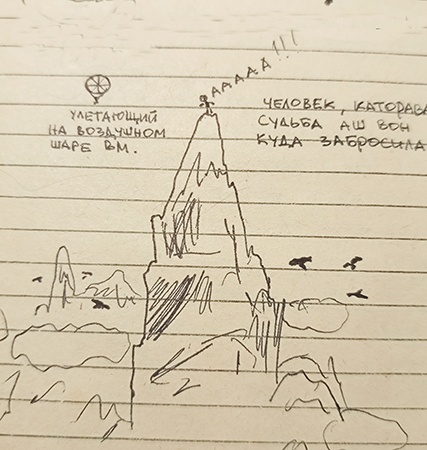 ААААА!!!
УЛЕТАЮЩИЙ
НА ВОЗДУШНОМ
ШАРЕ ВМ.
ЧЕЛОВЕК, КАТОРАВА
СУДЬБА АШ ВОН
КУДА ЗАБРОСИЛА